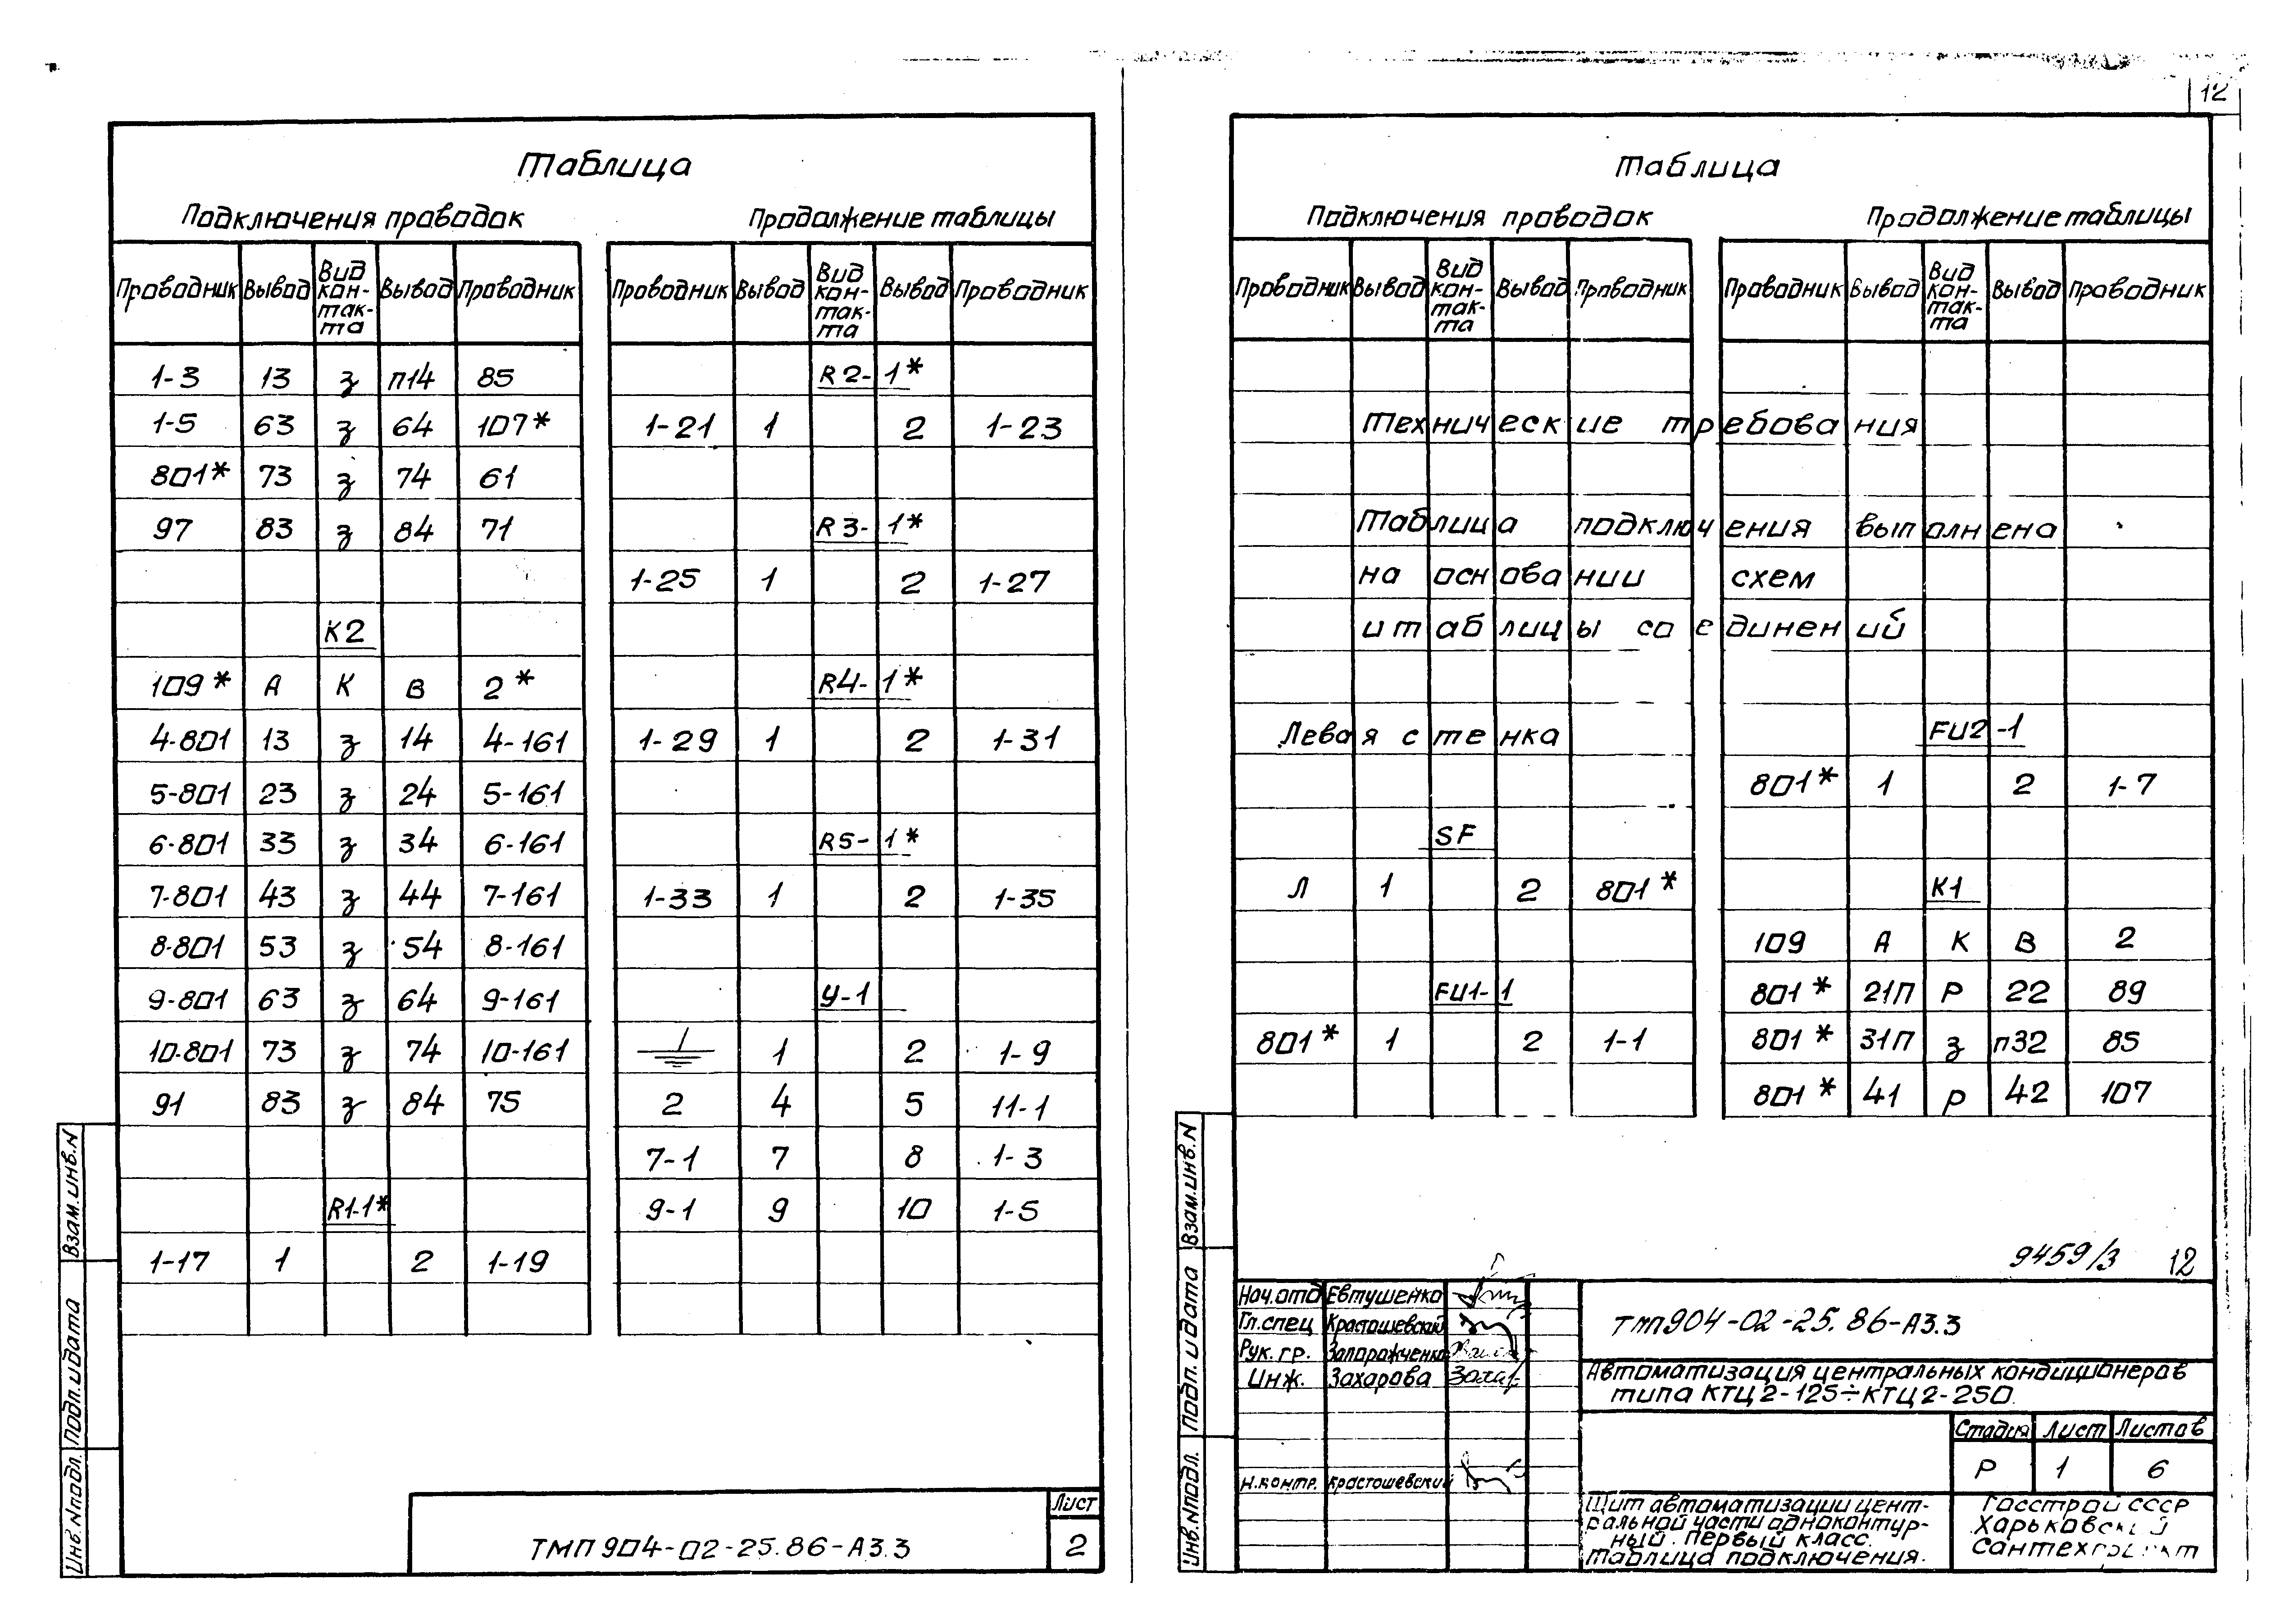 12
Таблица
Подключения проводок
Продолжение таблицы
Проводник Вывод Вид кон-так-та Вывод Проводник
1-3 13 з п14 85
1-5 63 з 64 107*
801* 73 з 74 61
97 83 з 84 71
К2
109* А К В 2*
4-801 13 з 14 4-161
5-801 23 з 24 5-161
6-801 33 з 34 6-161
7-801 43 з 44 7-161
8-801 53 з 54 8-161
9-801 63 з 64 9-161
10-801 73 з 74 10-161
91 83 з 84 75
R1-1*
1-17 1 2 1-19
Проводник Вывод Вид кон-так-та Вывод Проводник
R2-1*
1-21 1 2 1-23
R3-1*
1-25 1 2 1-27
R4-1*
1-29 1 2 1-31
R5-1*
1-33 1 2 1-35
У-1
1 2 1-9
2 4 5 11-1
7-1 7 8 1-3
9-1 9 10 1-5
Взам.инв.N
Подп. и дата
Инв.Nподл.
ТМП 904-02-25.86-А3.3
Лист
2
Таблица
Подключения проводок
Продолжение таблицы
Проводник Вывод Вид кон-так-та Вывод Проводник
Проводник Вывод Вид кон-так-та Вывод Проводник
Технические требования
Таблица подключения выполнена
на основании схем
и таблицы соединений
Левая стенка
SF
Л 1 2 801*
FU1-1
801* 1 2 1-1
FU2-1
801* 1 2 1-7
К1
109 А К В 2
801* 21П Р 22 89
801* 31П з п32 85
801* 41 Р 42 107
9459/3 12
Взам.инв.N
Подп. и дата
Инв.Nподл.
Нач.отд Евтушенко
Гл.спец Крастошевский
Рук. гр. Запорожченко
Инж. Захарова Захар
Н.контр. Крастошевский
ТМП904-02-25.86-А3.3
Автоматизация центральных кондиционеров
типа КТЦ2-125÷КТЦ2-250.
Стадия Лист Листов
Р 1 6
Щит автоматизации цент-
ральной части одноконтур-
ный. Первый класс.
Таблица подключения.
Госстрой СССР
Харьковский
Сантехпроект